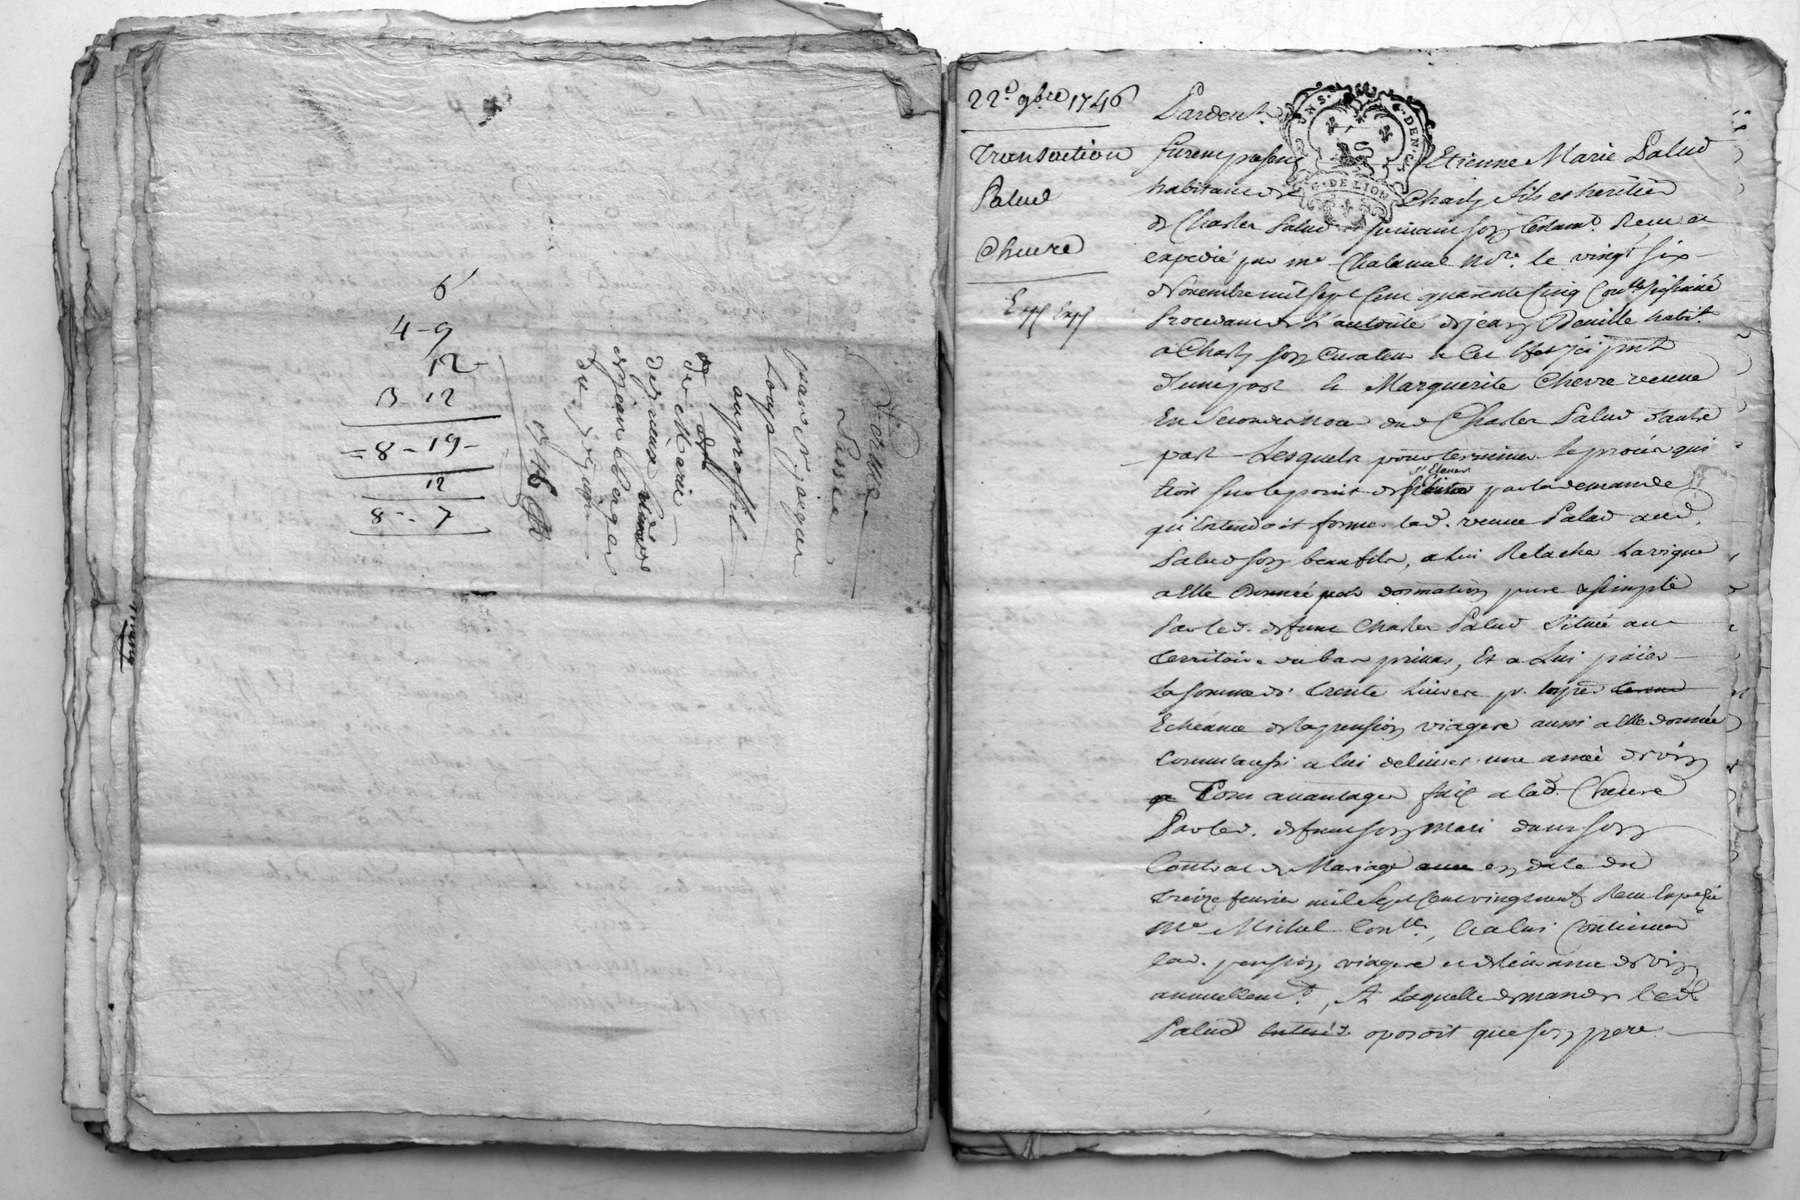 6
4-9
12-
3-12
=8-19-
12
8--7
1746
ferme
passée
par Sr jaegar
Loups
au proffit
de
de Marie
Desvieux
du Sr vigne
22e 9bre 1746
Transaction
Palud
Chevre
Exp Exp
Pardevt
GNS. G.DEN.CS
G. DE LION
furent presens Etienne Marie Palud
habitant de Charly fils et heritier
de Charles Palud suivant son testamt. Receu et
expedié par me Chalamel Nore. le vingt six
Novembre mil sept cens quarente cinq Conlle. insinué
Procedant de L'autorité de jean Deville habit.
a Charly son Curateur a ce Effet ici pnt
d'une part & Marguerite Chevre veuve
En secondes noces dud. Charles Palud d'autre
part - Lesquels pour terminer le procès qui
étoit sur le point de s'Elever par la demande
qu'entendoit former lad. veuve Palud aud.
Palud son beau fils, a lui Relacher La vigne
a Elle Donnée par donnation pure & simple
Par led. defunt Charles Palud située au
territoire du bas privas, Et a Lui païer
La somme de trente Livres pr. la pre
Echéance de la pension viagere aussi a Elle donnée
comm'aussi a lui delivrer une anée de vin
Tous avantages faits a lad. Chevre
Par led. defunt son mari dans son
Contrat de Mariage en date du
treize fevrier mil sept cent vingt neuf Receu Expedié
me Michel Conlle, & a lui Continuer
lad. pension viagere et de lad. anee de vin
annuellemt., A Laquelle demande led.
Palud oposoit que son pere